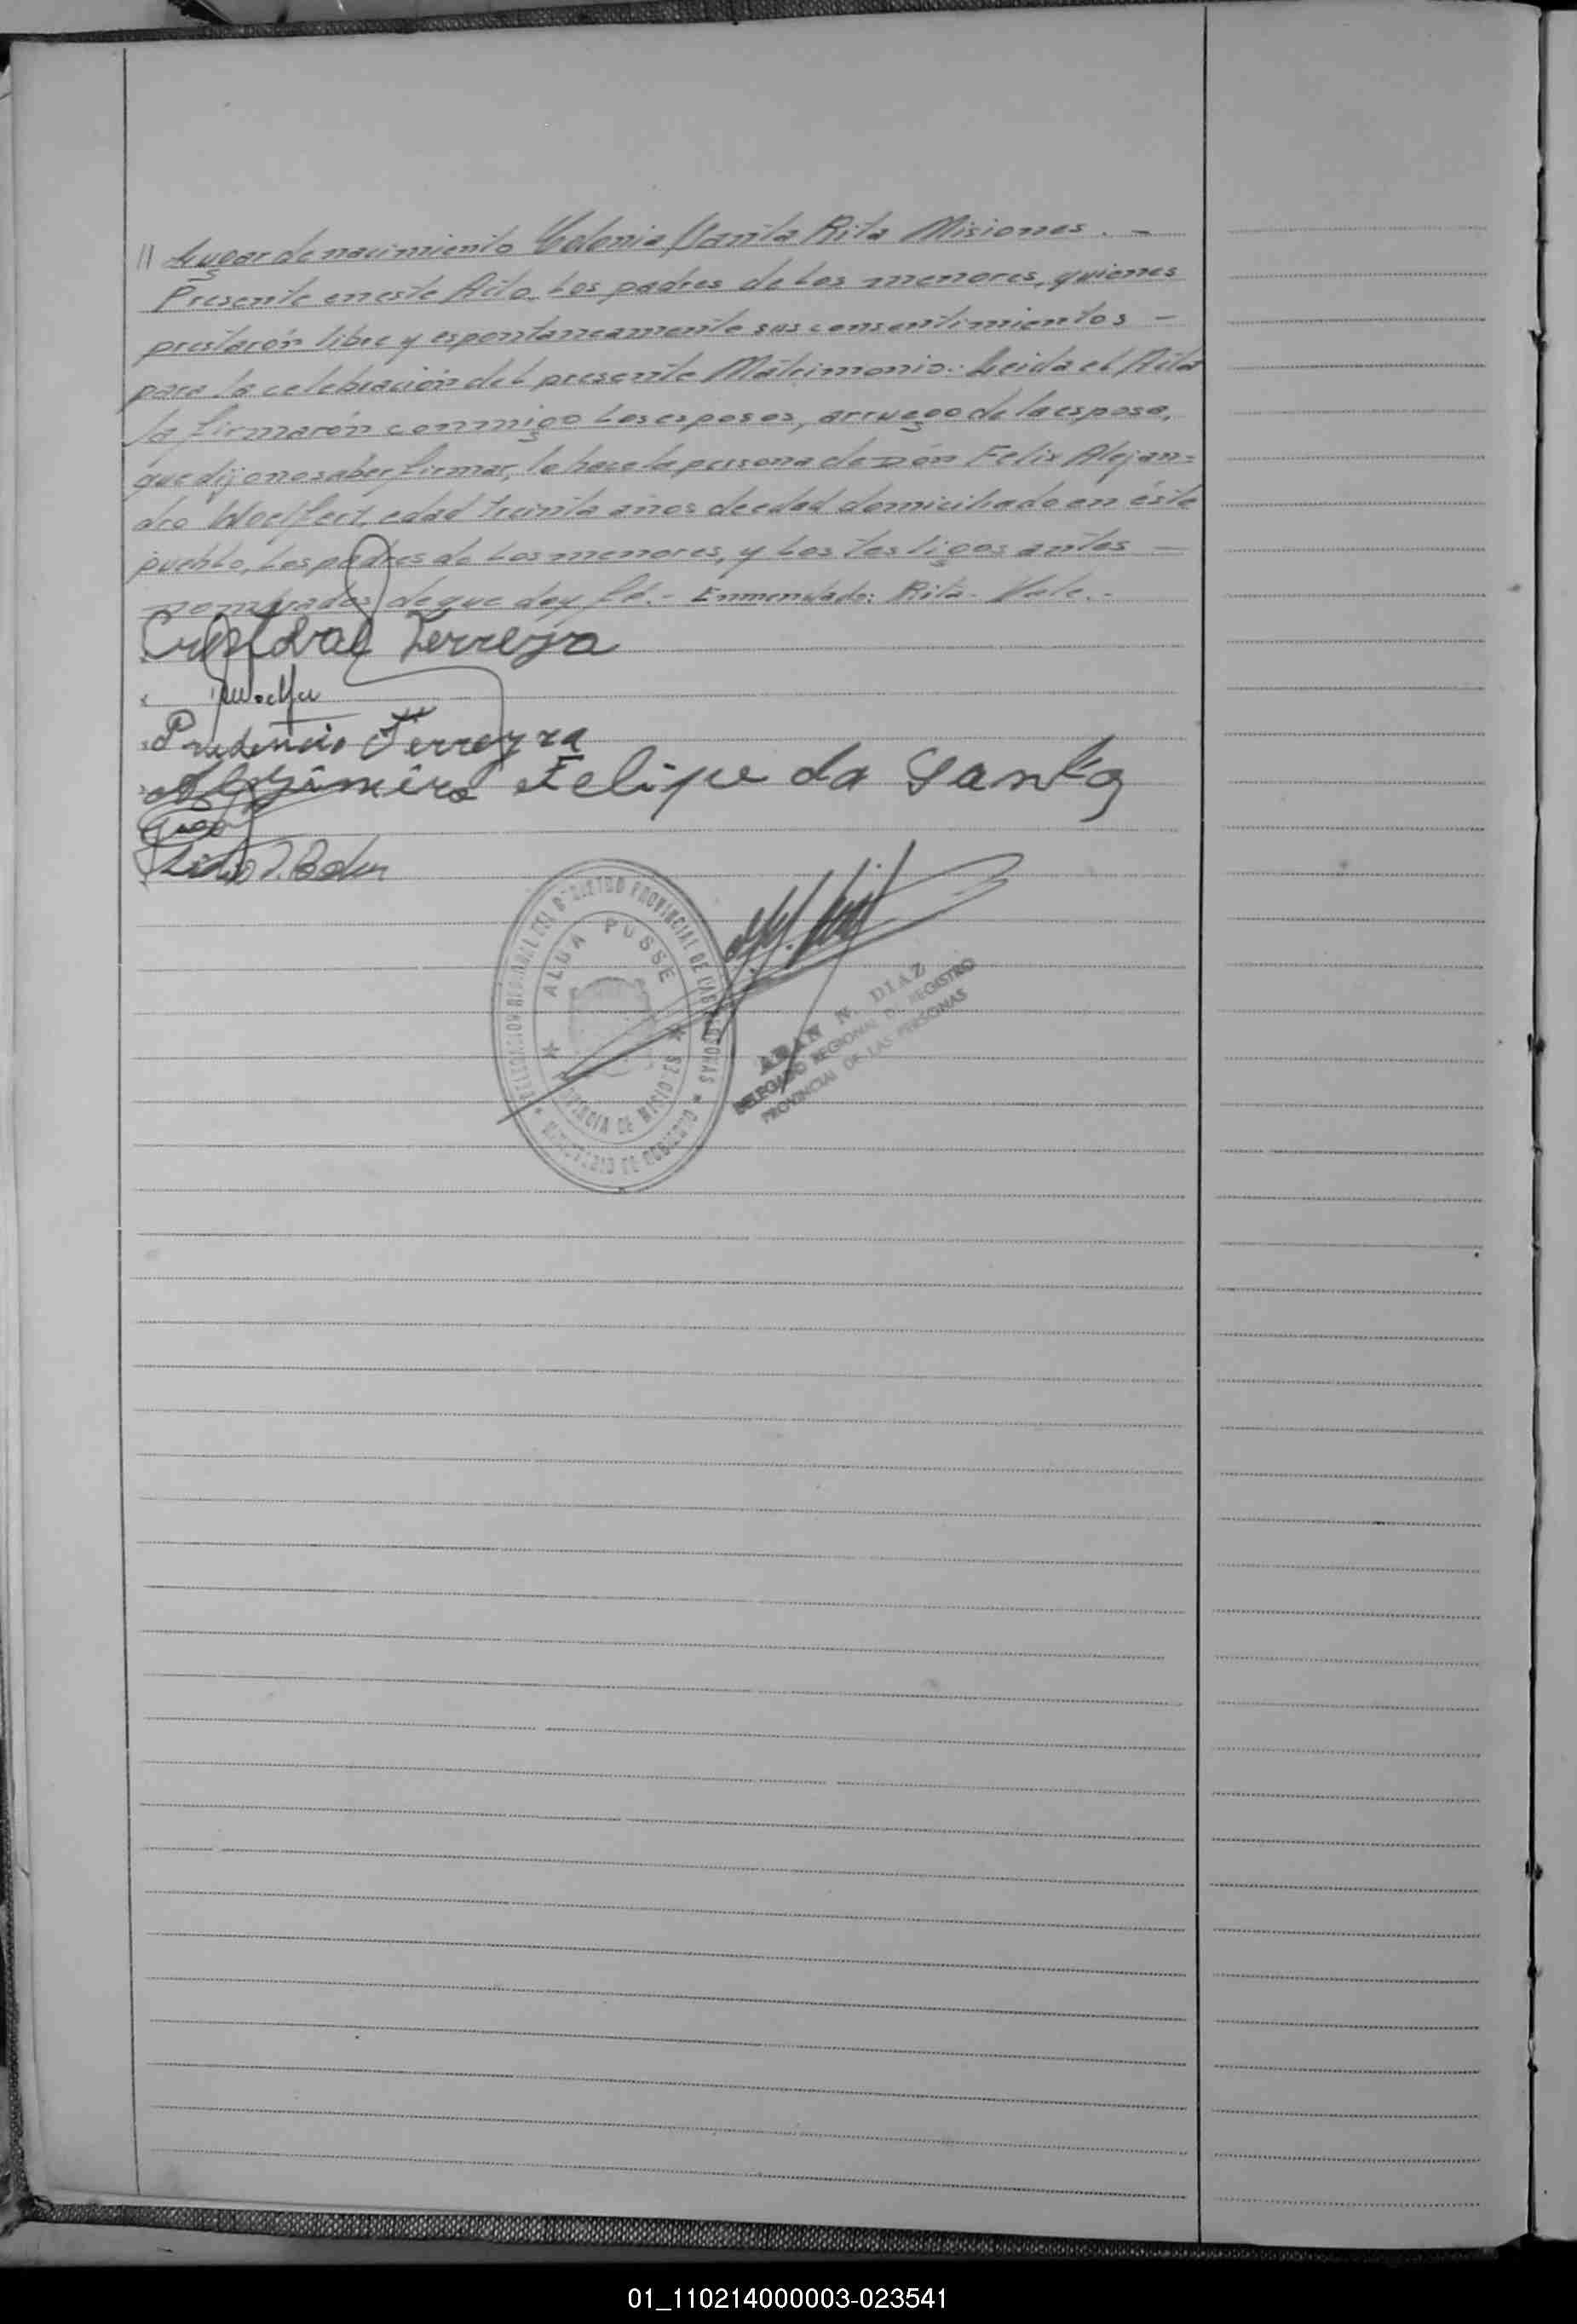 // Lugar de nacimiento Colonia Santa Rita Misiones. -
Presente en este Acto los padres de los menores, quienes
prestarón libre y espontaneamente sus consentimientos -
para la celebración del presente Matrimonio.- Leida el Acta
la firmarón conmigo los esposos, arruego de la esposa,
que dijo no saber firmar, lo hace la persona de Dón Felix Alejan=
dro Woelfert, edad treinta años de edad domiciliado en éste
pueblo, los padres de los menores, y los testigos antes -
nombrados, de que doy fé.- Enmendado: Rita - Vale.-
Cristoval Ferreyra
Prudencio Ferreyra
Felipe da Santa
DELEGACION REGIONAL DEL REGISTRO PROVINCIAL DE LAS PERSONAS
ALBA POSSE
PROVINCIA DE MISIONES
MINISTERIO DE GOBIERNO
N. DIAZ
DELEGADO REGIONAL DE REGISTRO
PROVINCIAL DE LAS PERSONAS
01_110214000003-023541